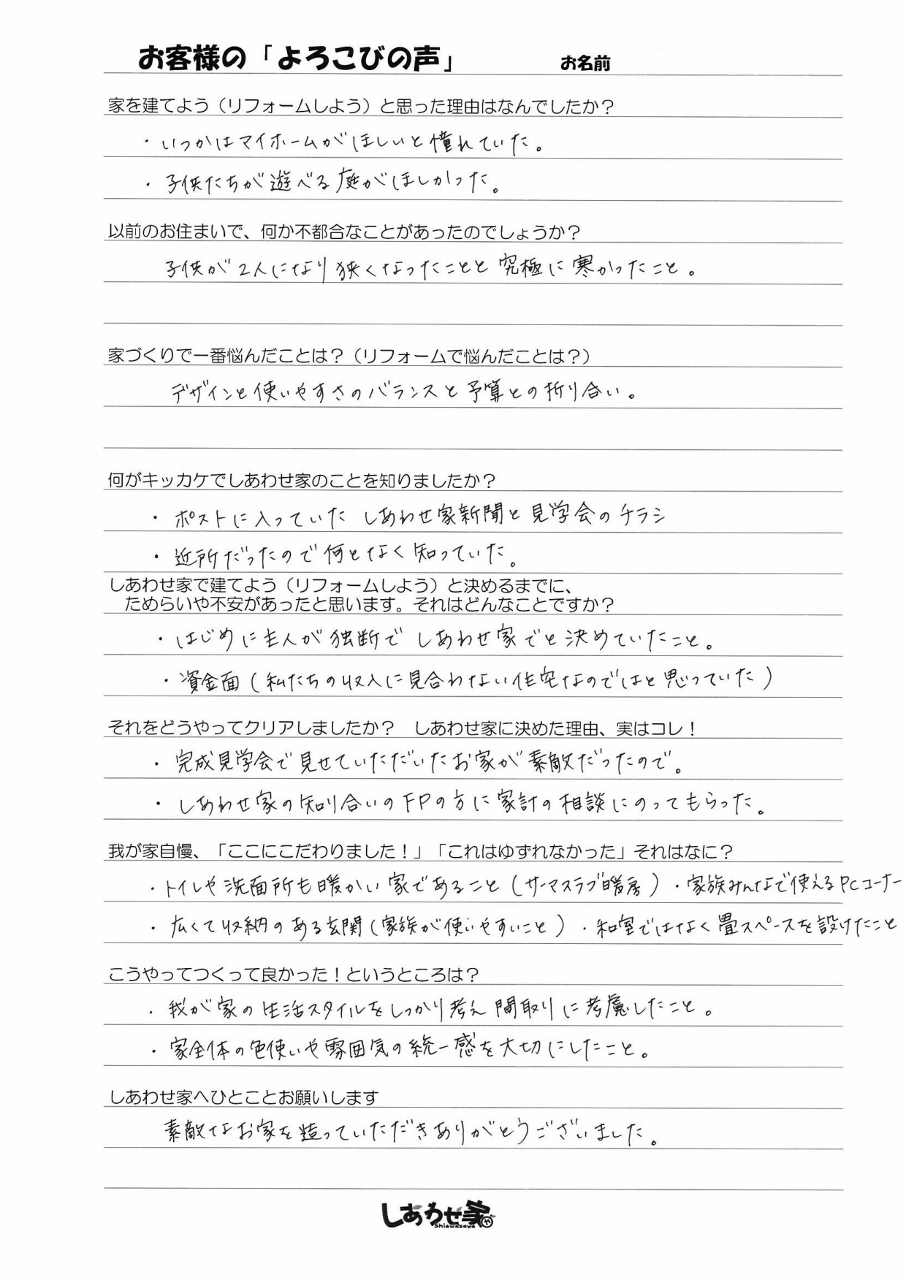 お客様の「よろこびの声」 お名前
家を建てよう（リフォームしよう）と思った理由はなんでしたか？
・いつかはマイホームがほしいと憧れていた。
・子供たちが遊べる庭がほしかった。
以前のお住まいで、何か不都合なことがあったのでしょうか？
子供が2人になり狭くなったことと究極に寒かったこと。
家づくりで一番悩んだことは？（リフォームで悩んだことは？）
デザインと使いやすさのバランスと予算との折り合い。
何がキッカケでしあわせ家のことを知りましたか？
・ポストに入っていた しあわせ家新聞と見学会のチラシ
・近所だったので何となく知っていた。
しあわせ家で建てよう（リフォームしよう）と決めるまでに、
ためらいや不安があったと思います。それはどんなことですか？
・はじめに主人が独断で しあわせ家でと決めていたこと。
・資金面（私たちの収入に見合わない住宅なのではと思っていた）
それをどうやってクリアしましたか？ しあわせ家に決めた理由、実はコレ！
・完成見学会で見せていただいたお家が素敵だったので。
・しあわせ家の知り合いのFPの方に家計の相談にのってもらった。
我が家自慢、「ここにこだわりました！」「これはゆずれなかった」それはなに？
・トイレや洗面所も暖かい家であること（サーマスラブ暖房）・家族みんなで使えるPCコーナー
・広くて収納のある玄関（家族が使いやすいこと）・和室ではなく畳スペースを設けたこと
こうやってつくって良かった！というところは？
・我が家の生活スタイルをしっかり考え間取りに考慮したこと。
・家全体の色使いや雰囲気の統一感を大切にしたこと。
しあわせ家へひとことお願いします
素敵なお家を造っていただきありがとうございました。
しあわせ家や
Shiawaseya